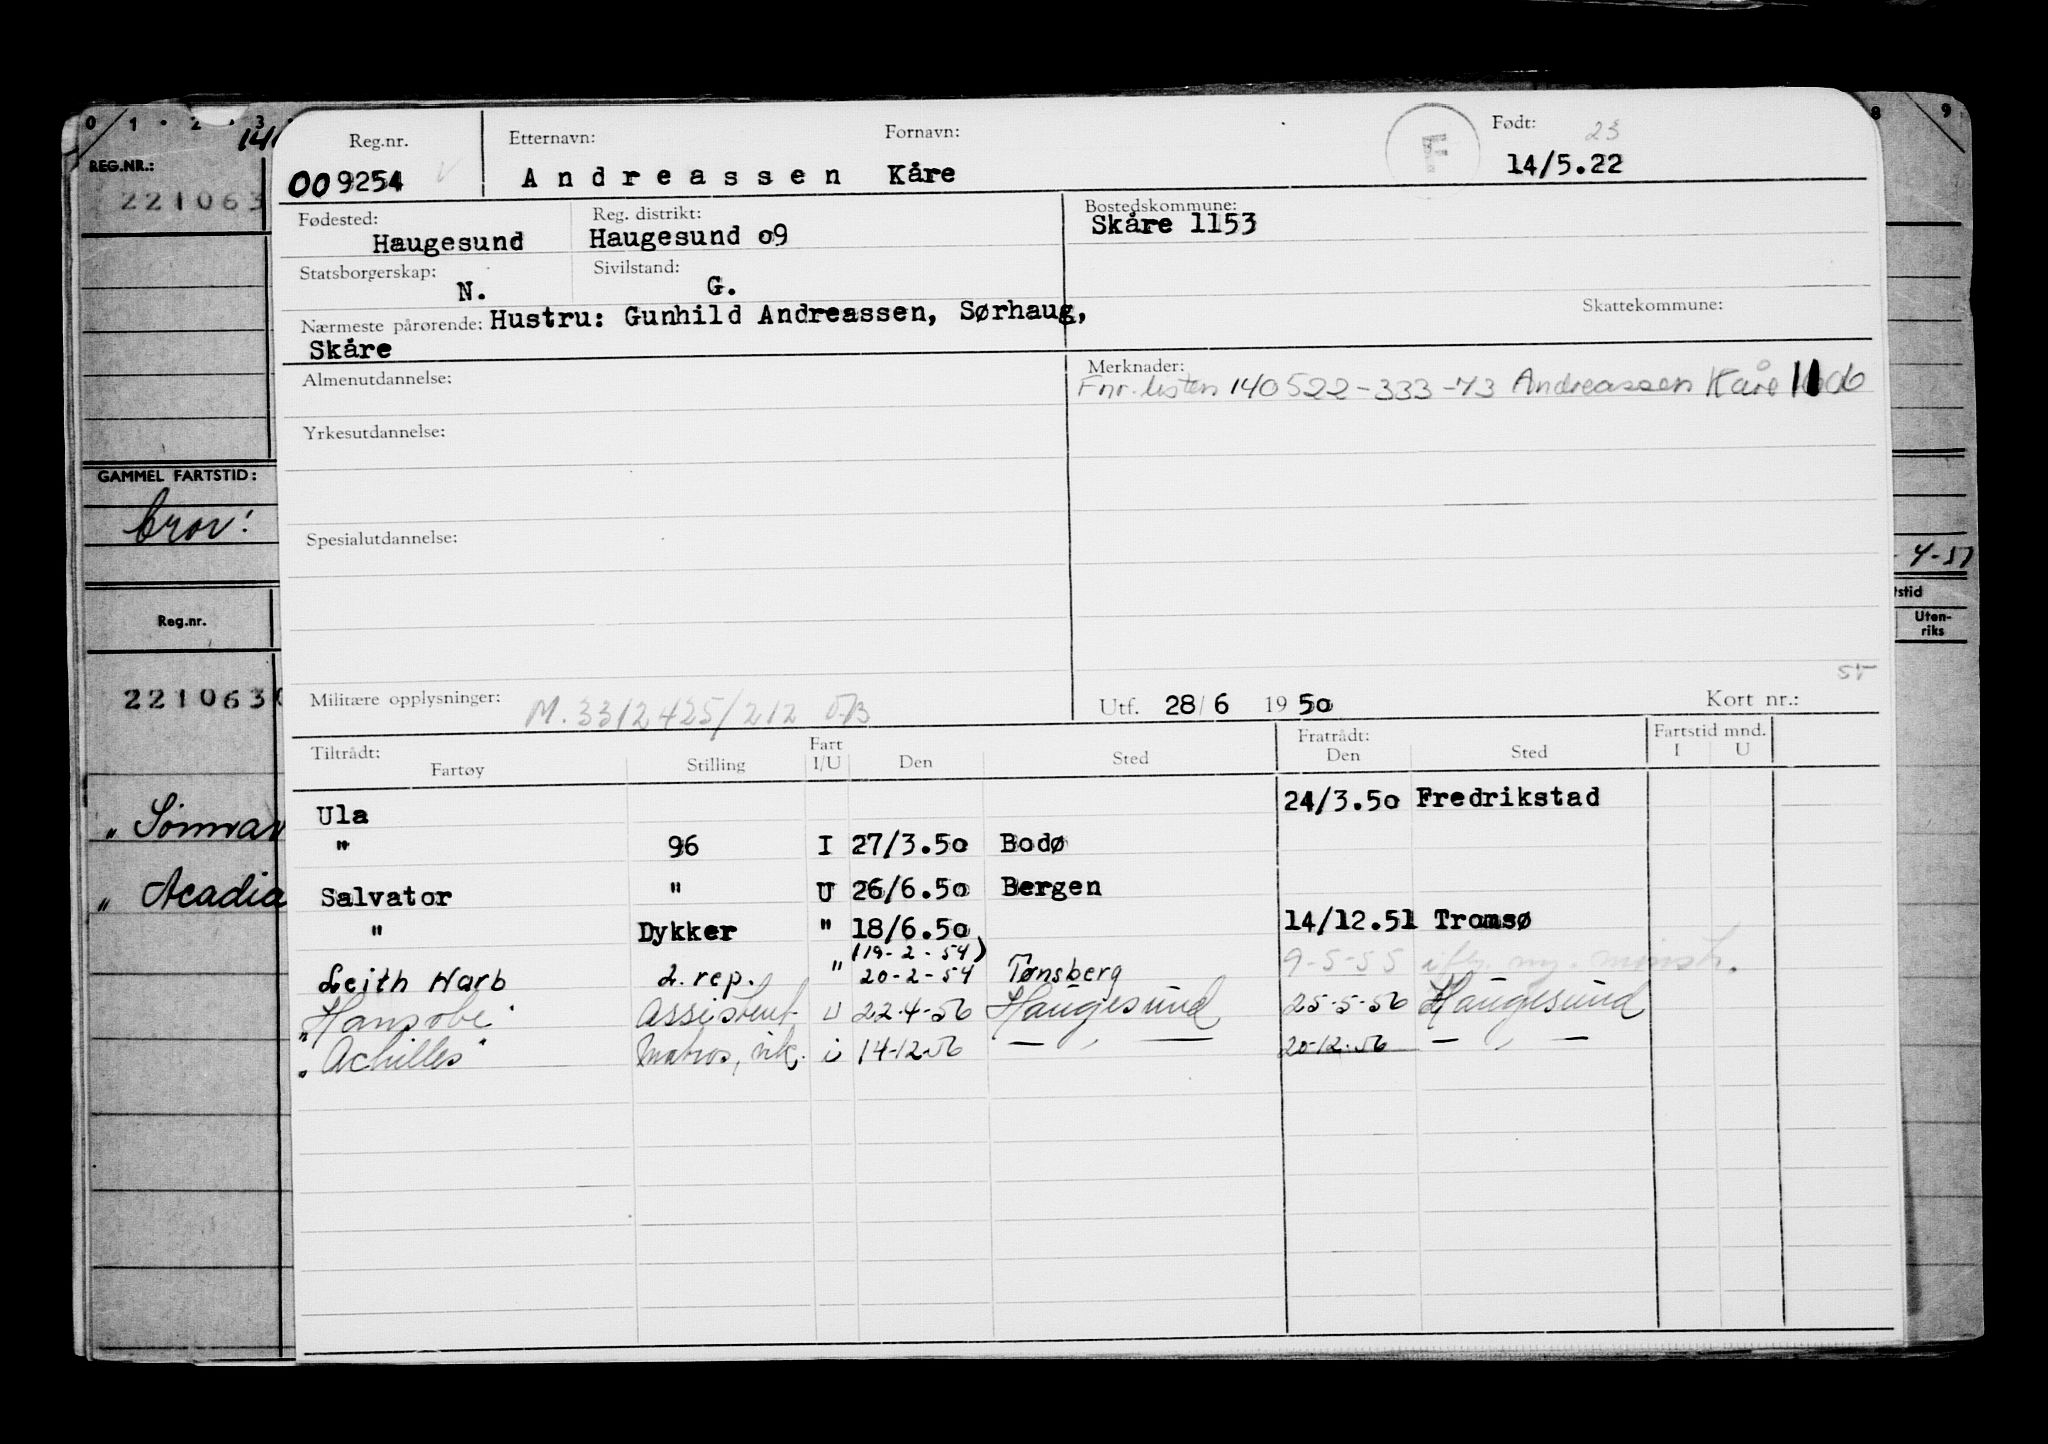 0 1 · 2 · 3
8 9
REG.NR.:
221063
GAMMEL FARTSTID:
brov!
- 4-57
Reg.nr.
Uten-
riks
221063
" Sømna
" Acadia
Reg.nr. Etternavn: Fornavn: F Født: 23
009254 V Andreassen Kåre 14/5.22
Fødested: Reg. distrikt: Bostedskommune:
Haugesund Haugesund 09 Skåre 1153
Statsborgerskap: Sivilstand:
N. G.
Skattekommune:
Nærmeste pårørende: Hustru: Gunhild Andreassen, Sørhaug,
Skåre
Almenutdannelse: Merknader:
Fnr. listen 140522-333-73 Andreassen Kåre
Yrkesutdannelse:
Spesialutdannelse:
Militære opplysninger: M. 3312425/212 Utf. 28/6 1950 Kort nr.:
Tiltrådt: Fart Fratrådt: Fartstid mnd.
Fartøy Stilling I/U Den Sted Den Sted I U
Ula 24/3.50 Fredrikstad
" 96 I 27/3.50 Bodø
Salvator " U 26/6.50 Bergen
" Dykker " 18/6.50 14/12.51 Tromsø
(19-2-54)
Leith Harb 2. rep. " 20-2-54 Tønsberg 9-5-55 iflg. ny. mønstr.
"Hansobe" Assistent U 22-4-56 Haugesund 25-5-56 Haugesund
"Achilles" Matros, vik. i 14-12-56 — " — 20-12-56 — " —